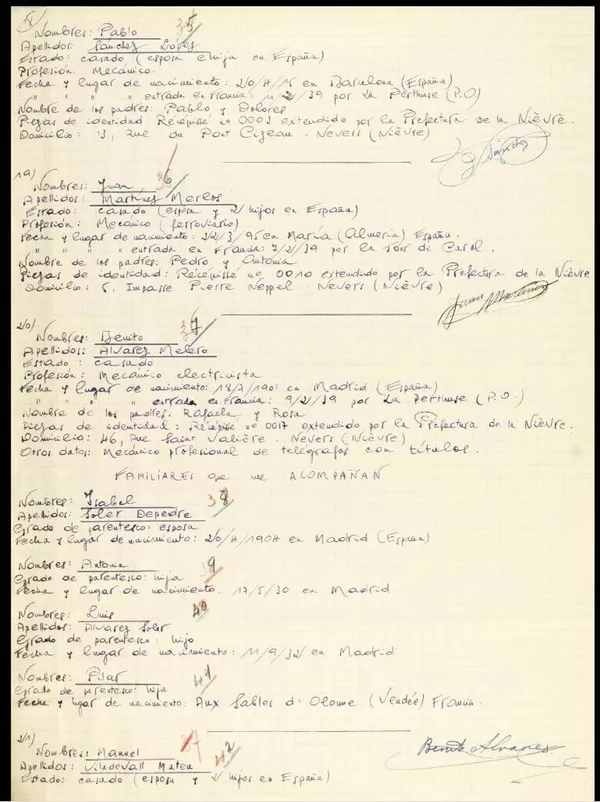 18)
Nombres: Pablo 35
Apellidos: Sánchez López
Estado: casado (esposa e hija en España)
Profesión: Mecánico.
Fecha y lugar de nacimiento: 20/4/15 en Barcelona (España)
" " " entrada en Francia: 11-2/39 por La Perthuse (P.O)
Nombre de los padres: Pablo y Dolores
Piezas de identidad Récépisse nº 0003 extendido por la Prefectura de la Nièvre.
Domicilio: 13, Rue du Pont Cizeau - Nevers (Nièvre)
Sánchez
19)
Nombres: Juan 36
Apellidos: Martínez Merlos
Estado: casado (esposa y 2 hijos en España)
Profesión: Mecánico (ferroviario)
Fecha y lugar de nacimiento: 22/3/95 en María (Almería) España.
" " " entrada en Francia: 7/2/39 por la Tour de Carol.
Nombre de los padres: Pedro y Antonia
Piezas de identidad: Récépisse nº 0010 extendido por la Prefectura de la Nièvre
Domicilio: 5, Impasse Pierre Neppel - Nevers (Nièvre)
Juan Martínez
20)
Nombres: Benito 37
Apellidos: Alvarez Melero
Estado: casado
Profesión: Mecánico electricista
Fecha y lugar de nacimiento: 18/7/1901 en Madrid (España)
" " " entrada en Francia: 9/2/39 por La Perthuse (P.O.)
Nombre de los padres: Rafaela y Rosa
Piezas de identidad: Récépisse nº 0017 extendido por la Prefectura de la Nièvre.
Domicilio: 46, Rue Saint Valière. Nevers (Nièvre)
Otros datos: Mecánico profesional de telégrafos con títulos.
FAMILIARES que me ACOMPAÑAN
Nombres: Isabel 38
Apellidos: Soler Depedre
Grado de parentesco: esposa
Fecha y lugar de nacimiento: 20/4/1904 en Madrid (España)
Nombres: Antonia 9
Grado de parentesco: hija
Fecha y lugar de nacimiento. 17/5/30 en Madrid
Nombres: Luis 40
Apellidos: Alvarez Soler
Grado de parentesco: hijo
Fecha y lugar de nacimiento: 11/9/32 en Madrid
Nombres: Pilar 41
Grado de parentesco: hija
Fecha y lugar de nacimiento: Aux Sables d'Olonne (Vendée) Francia.
Benito Alvarez
21)
Nombres: Manuel 42
Apellidos: Viladevall Mateu
Estado: casado (esposa y 2 hijos en España)